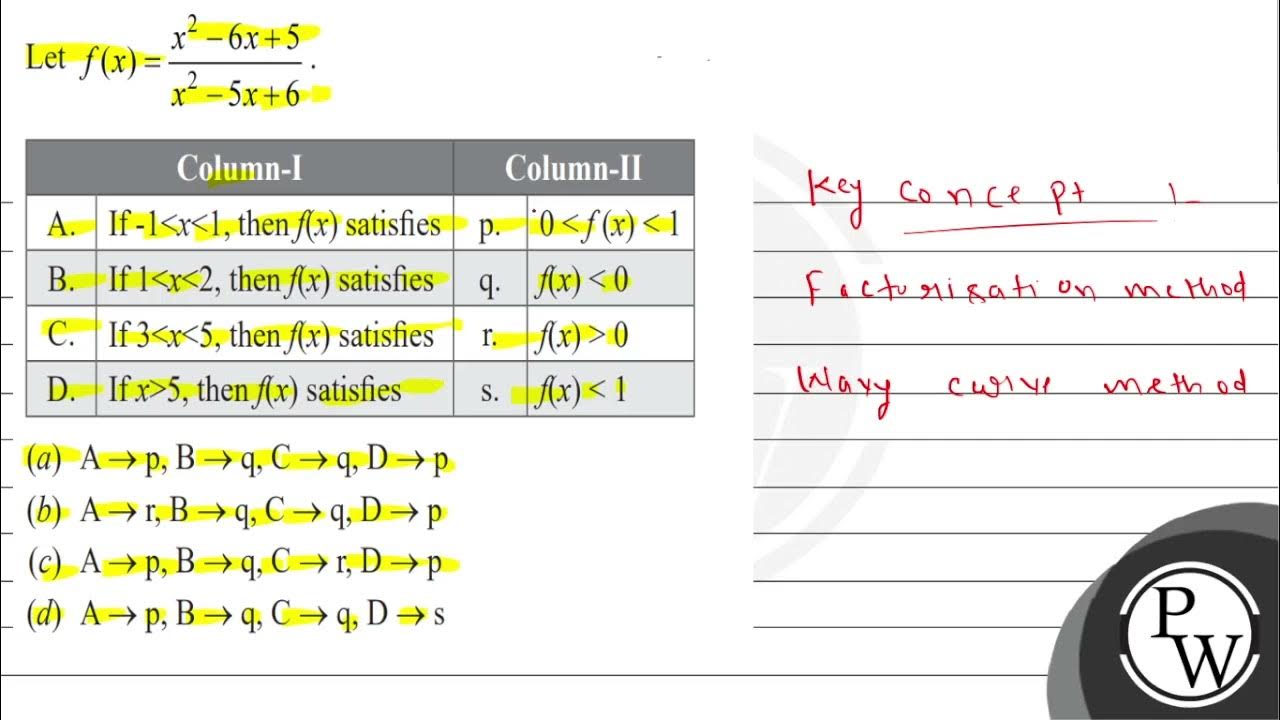 Let f(x) = x² – 6x + 5 / x² – 5x + 6 .
Column-I Column-II
A. If -1<x<1, then f(x) satisfies p. 0 < f (x) < 1
B. If 1<x<2, then f(x) satisfies q. f(x) < 0
C. If 3<x<5, then f(x) satisfies r. f(x) > 0
D. If x>5, then f(x) satisfies s. f(x) < 1
(a) A → p, B → q, C → q, D → p
(b) A → r, B → q, C → q, D → p
(c) A → p, B → q, C → r, D → p
(d) A → p, B → q, C → q, D → s
Key concept :-
Factorisation method
Wavy curve method
PW